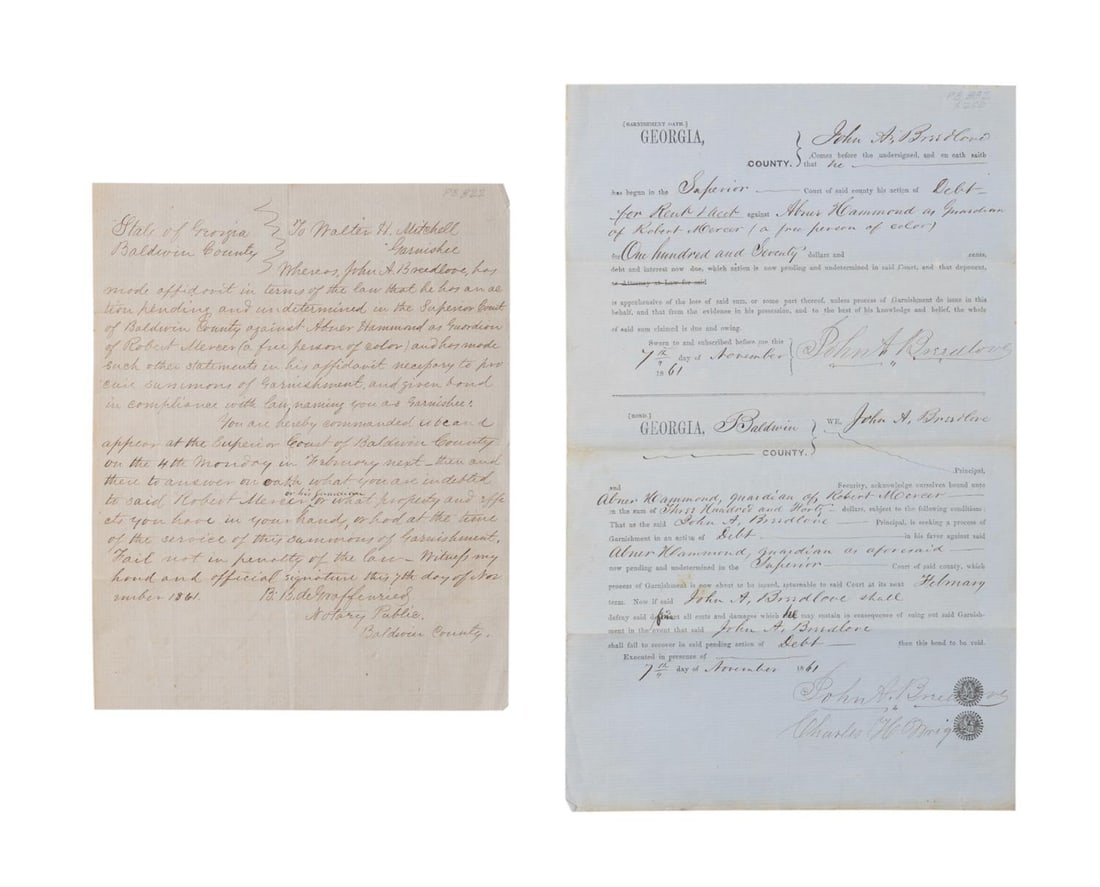 PS 822
State of Georgia
Baldwin County
To Walter H. Mitchell
Garnishee
Whereas, John A. Breedlove, has
made affidavit in terms of the law that he has an ac
tion pending and undetermined in the Superior Court
of Baldwin County against Abner Hammond as Guardian
of Robert Mercer (a free person of color) and has made
such other statements in his affidavit necessary to pro
cure summons of Garnishment, and given bond
in compliance with law, naming you as Garnishee:
You are hereby commanded to be and
appear at the Superior Court of Baldwin County
on the 4th Monday in February next - then and
there to answer on oath what you are indebted
or his guardian
to said Robert Mercer or what property and eff
ects you have in your hand, or had at the time
of the service of this summons of Garnishment.
Fail not in penalty of the law - Witness my
hand and official signature this 7th day of Nov
ember 1861.
B. B. de Graffenried
Notary Public.
Baldwin County.
PS 822
[GARNISHMENT OATH.]
GEORGIA,
COUNTY.
John A, Breedlove
Comes before the undersigned, and on oath saith
that he
has began in the Superior Court of said county his action of Debt
for Rent &acct against Abner Hammond as Guardian
of Robert Mercer (a free person of color)
for One hundred and Seventy dollars and cents,
debt and interest now due, which action is now pending and undetermined in said Court, and that deponent,
as Attorney at Law for said
is apprehensive of the loss of said sum, or some part thereof, unless process of Garnishment do issue in this
behalf, and that from the evidence in his possession, and to the best of his knowledge and belief, the whole
of said sum claimed is due and owing.
Sworn to and subscribed before me this
7th day of November
1861
John A Breedlove
[BOND.]
GEORGIA, Baldwin
COUNTY.
WE, John A, Breedlove
Principal,
and Security, acknowledge ourselves bound unto
Abner Hammond, guardian of Robert Mercer
in the sum of Three Hundred and Forty dollars, subject to the following conditions:
That as the said John A, Breedlove Principal, is seeking a process of
Garnishment in an action of Debt in his favor against said
Abner Hammond, guardian as aforesaid
now pending and undetermined in the Superior Court of said county, which
process of Garnishment is now about to be issued, returnable to said Court at its next February
term. Now if said John A, Breedlove shall
defray said all costs and damages which he may sustain in consequence of suing out said Garnish-
ment in the event that said John A, Breedlove
shall fail to recover in said pending action of Debt then this bond to be void.
Executed in presence of
7th day of November 1861
John A, Breedlove
Charles H